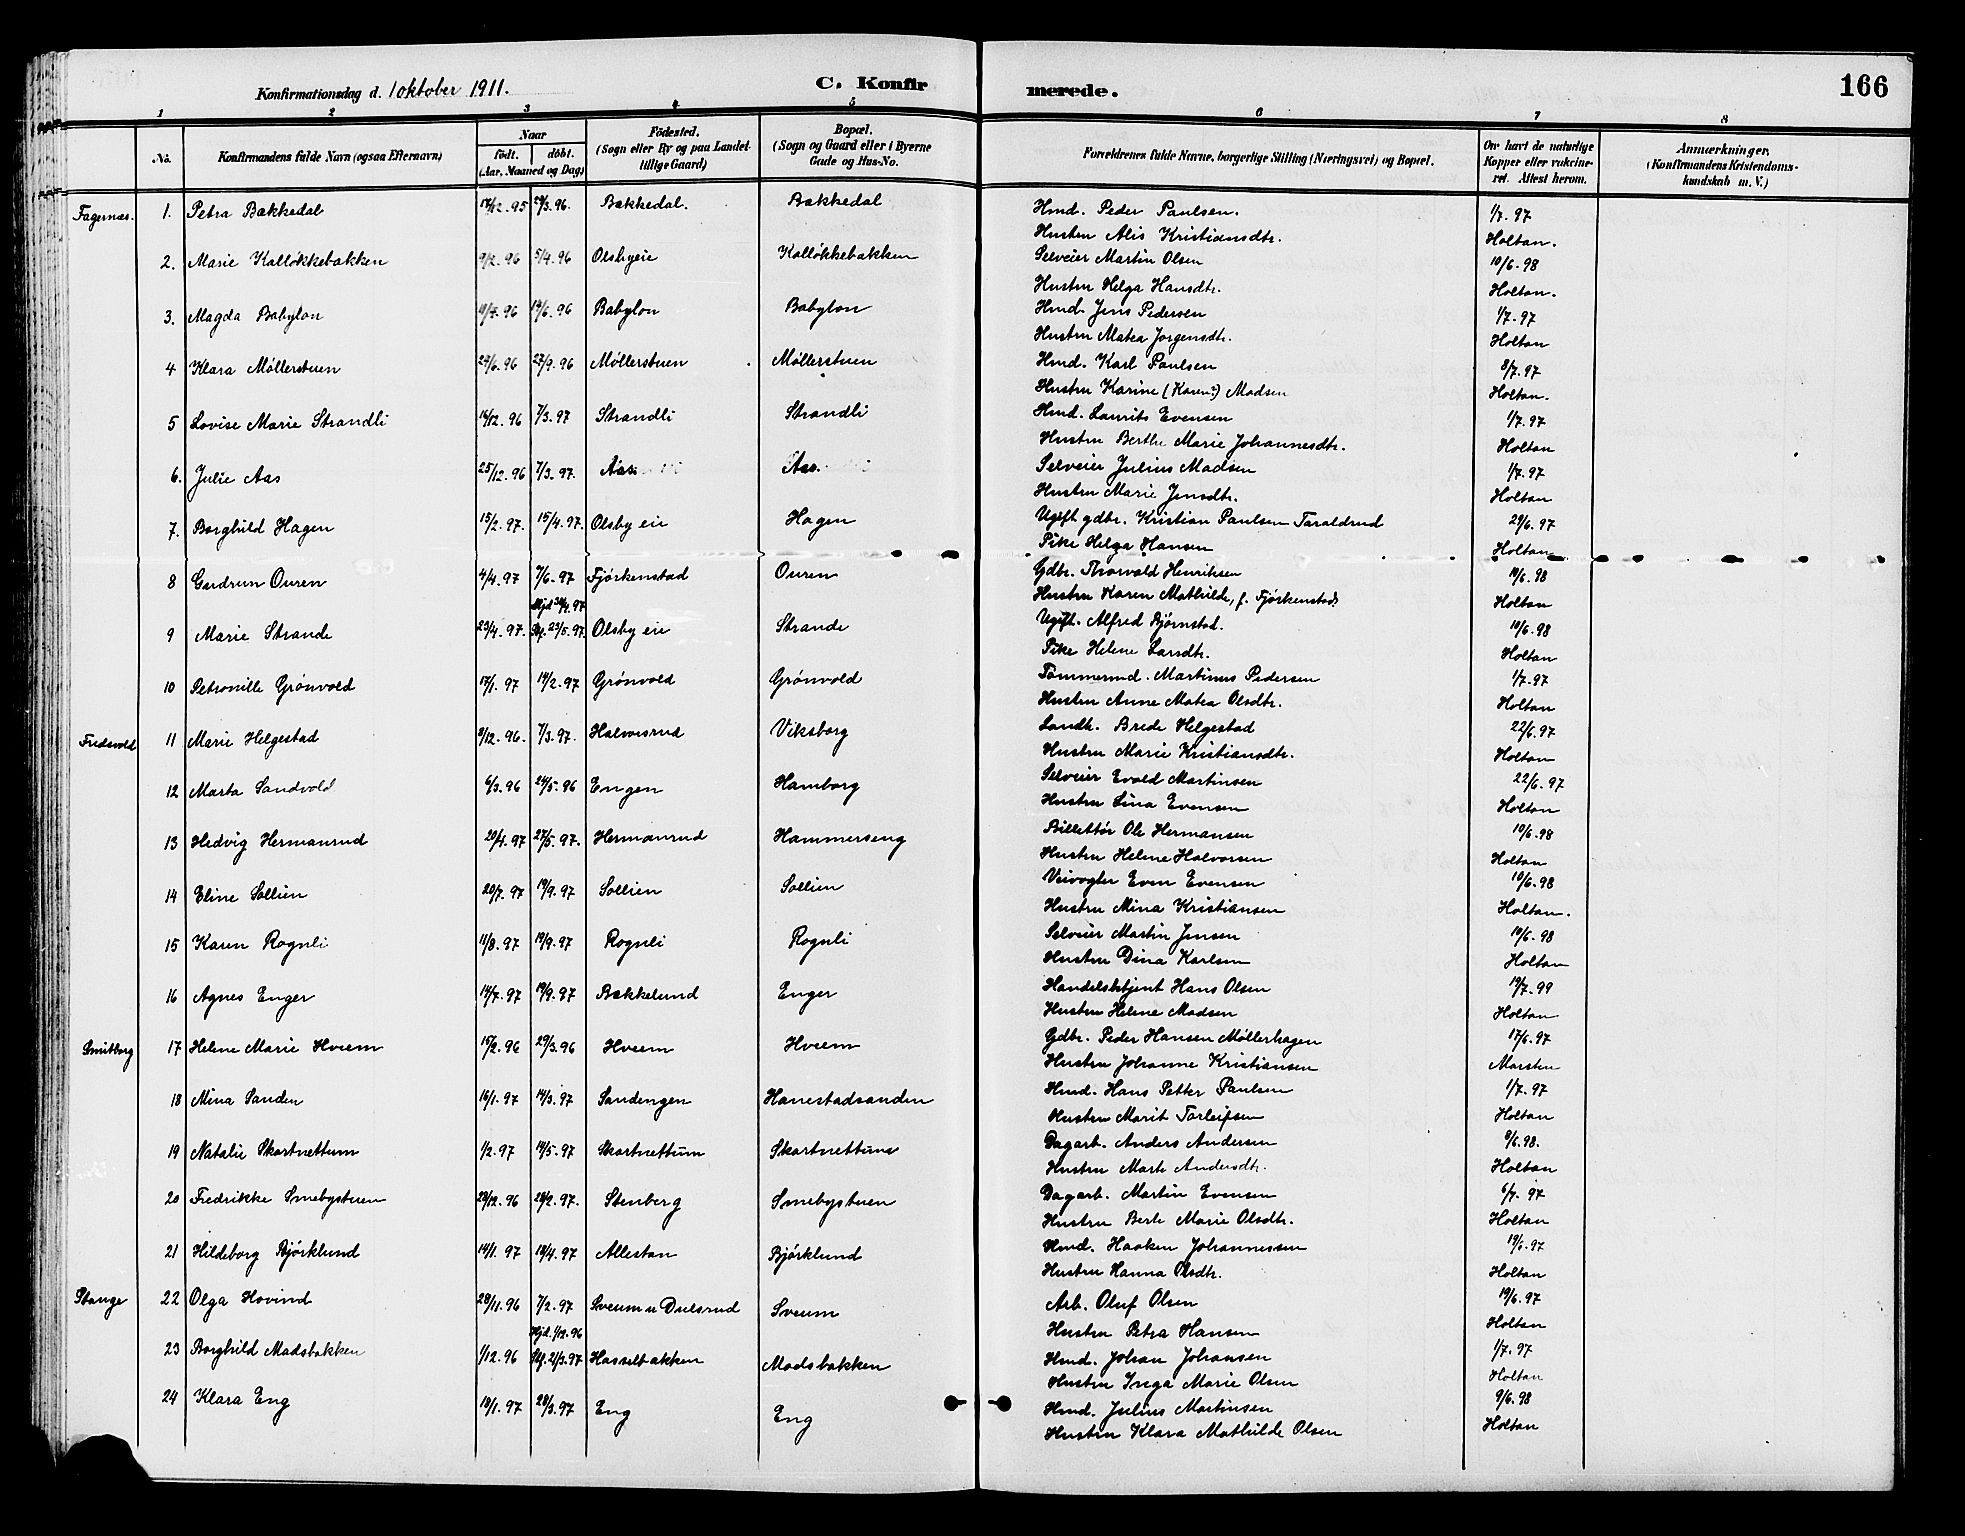 166
Konfirmationsdag d. 1 oktober 1911. C. Konfirmerede.
1 2 3 4 5 6 7 8
No. Konfirmandens fulde Navn (ogsaa Efternavn) Naar födt. döbt. (Aar, Maaned og Dag) Födested. (Sogn eller By og paa Landet tillige Gaard) Bopæl. (Sogn og Gaard eller i Byerne Gade og Hus-No. Forældrenes fulde Navne, borgerlige Stilling (Næringsvei) og Bopæl. Om havt de naturlige Kopper eller vakcineret. Attest herom. Anmærkninger, (Konfirmandens Kristendomskundskab m. V.)
Fagernæs. 1. Petra Bækkedal 12.95 3.96. Bækkedal. Bækkedal Hmd. Peder Paulsen. 1/7.97
Hustru Alis Kristiansdtr. Holtan.
2. Marie Kalløkkebakken 9/2.96 5/4.96 Olsbyeie Kalløkkebakken Selveier Martin Olsen 10/6.98
Hustru Helga Hansdtr. Holtan.
3. Magda Babylon 14/6.96 Babylon Babylon Hmd. Jens Pedersen 1/7.97
Hustru Matea Jorgensdtr. Holtan
4 Klara Møllerstuen 27/9.96 Møllerstuen Møllerstuen Hmd. Karl Paulsen 8/7.97
Hustru Karine (Karen?) Madsen Holtan.
5 Lovise Marie Strandli 16/12.96 7/3.97 Strandli Strandli Hmd. Laurits Evensen 1/7.97
Hustru Berthe Marie Johannesdtr. Holtan
6. Julie Aas 25/12.96 7/3.97. Aas. Aas. Selveier Julius Madsen 1/7.97
Hustru Marie Jensdtr. Holtan
7. Borghild Hagen 15/2.97. 15/4.97. Olsby eie Hagen Ugift gdbr. Kristian Paulsen Taraldrud 29/6.97
Pike Helga Hansen Holtan
8 Gudrun Ouren 4/4.97 7/6.97 Fjørkenstad Ouren Gdbr. Thorvald Henriksen 10/6.98
Hustru Karen Mathilde, f. Fjørkenstad Holtan
9 Marie Strande 23/4.97. 23/5.97. Olsby eie Strande Ugift. Alfred Bjørnstad. 10/6.98
Pike Helene Larsdtr. Holtan
10 Petronille Grønvold 17/1.97 14/2.97 Grønvold Grønvold Tømmermd. Martinus Pedersen 1/7.97
Hustru Anne Matea Olsdtr. Holtan
Fredsvold 11 Marie Helgestad 8/12.96. 7/3.97. Halvorsrud Viksborg Landh. Brede Helgestad 22/6.97
Hustru Marie Kristiansdtr. Holtan
12 Marta Sandvold 6/3.96 24/5.96 Engen Hamborg Selveier Evald Martinsen 22/6.97
Hustru Lina Evensen Holtan
13 Hedvig Hermanrud 20/4.97 27/5.97. Hermanrud Hammerseng Billettør Ole Hermansen 10/6.98
Hustru Helene Halvorsen Holtan
14 Eline Sollien 20/7.97 19/9.97 Sollien Sollien Veivogter Even Evensen 10/6.98
Hustru Mina Kristiansen Holtan.
15 Karen Rognli 11/8.97 19/9.97 Rognli Rognli Selveier Martin Jensen 10/6.98
Hustru Dina Karlsen Holtan
16 Agnes Enger 14/7.97 19/9.97 Bækkelund Enger Handelsbetjent Hans Olsen 7.99
Hustru Helene Madsen Holtan
Smitborg 17 Helene Marie Hveem 15/2.96 29/3.96 Hveem Hveem Gdbr. Peder Hansen Møllerhagen 17/6.97
Hustru Johanne Kristiansen Marsten
18 Mina Sanden 16/1.97 14/3.97 Sandengen Hanestadsanden Hmd. Hans Petter Paulsen 1/7.97
Hustru Marit Torleifsen Holtan
19 Natalie Skartnettum 1/2.97 14/5.97 Skartnettum Skartnettum Dagarb. Anders Andersen 9/6.98.
Hustru Marte Andersdtr. Holtan
20 Fredrikke Smebystuen 12.96 28/2.97. Stenberg Smebystuen Dagarb. Martin Evensen 6/7.97
Hustru Berte Marie Olsdtr. Holtan
21 Hildeborg Bjørklund 14/1.97 18/4.97 Allestan Bjørklund Hmd. Haaken Johannessen 19/6.97
Hustru Hanna Olsdtr. Holtan
Stange 22 Olga Hovind 28/11.96 7/2.97 Sveum u Dulsrud Sveum Arb. Oluf Olsen 19/6.97
Hustru Petra Hansen Holtan
23 Borghild Madsbakken 1/12.96 21/3.97 Hasselbakken Madsbakken Hmd. Johan Johansen 1/7.97
Hustru Inga Marie Olsen Holtan
24 Klara Eng 10/1.97 28/3.97 Eng Eng Hmd. Julius Martinsen 9/6.98
Hustru Klara Mathilde Olsen Holtan